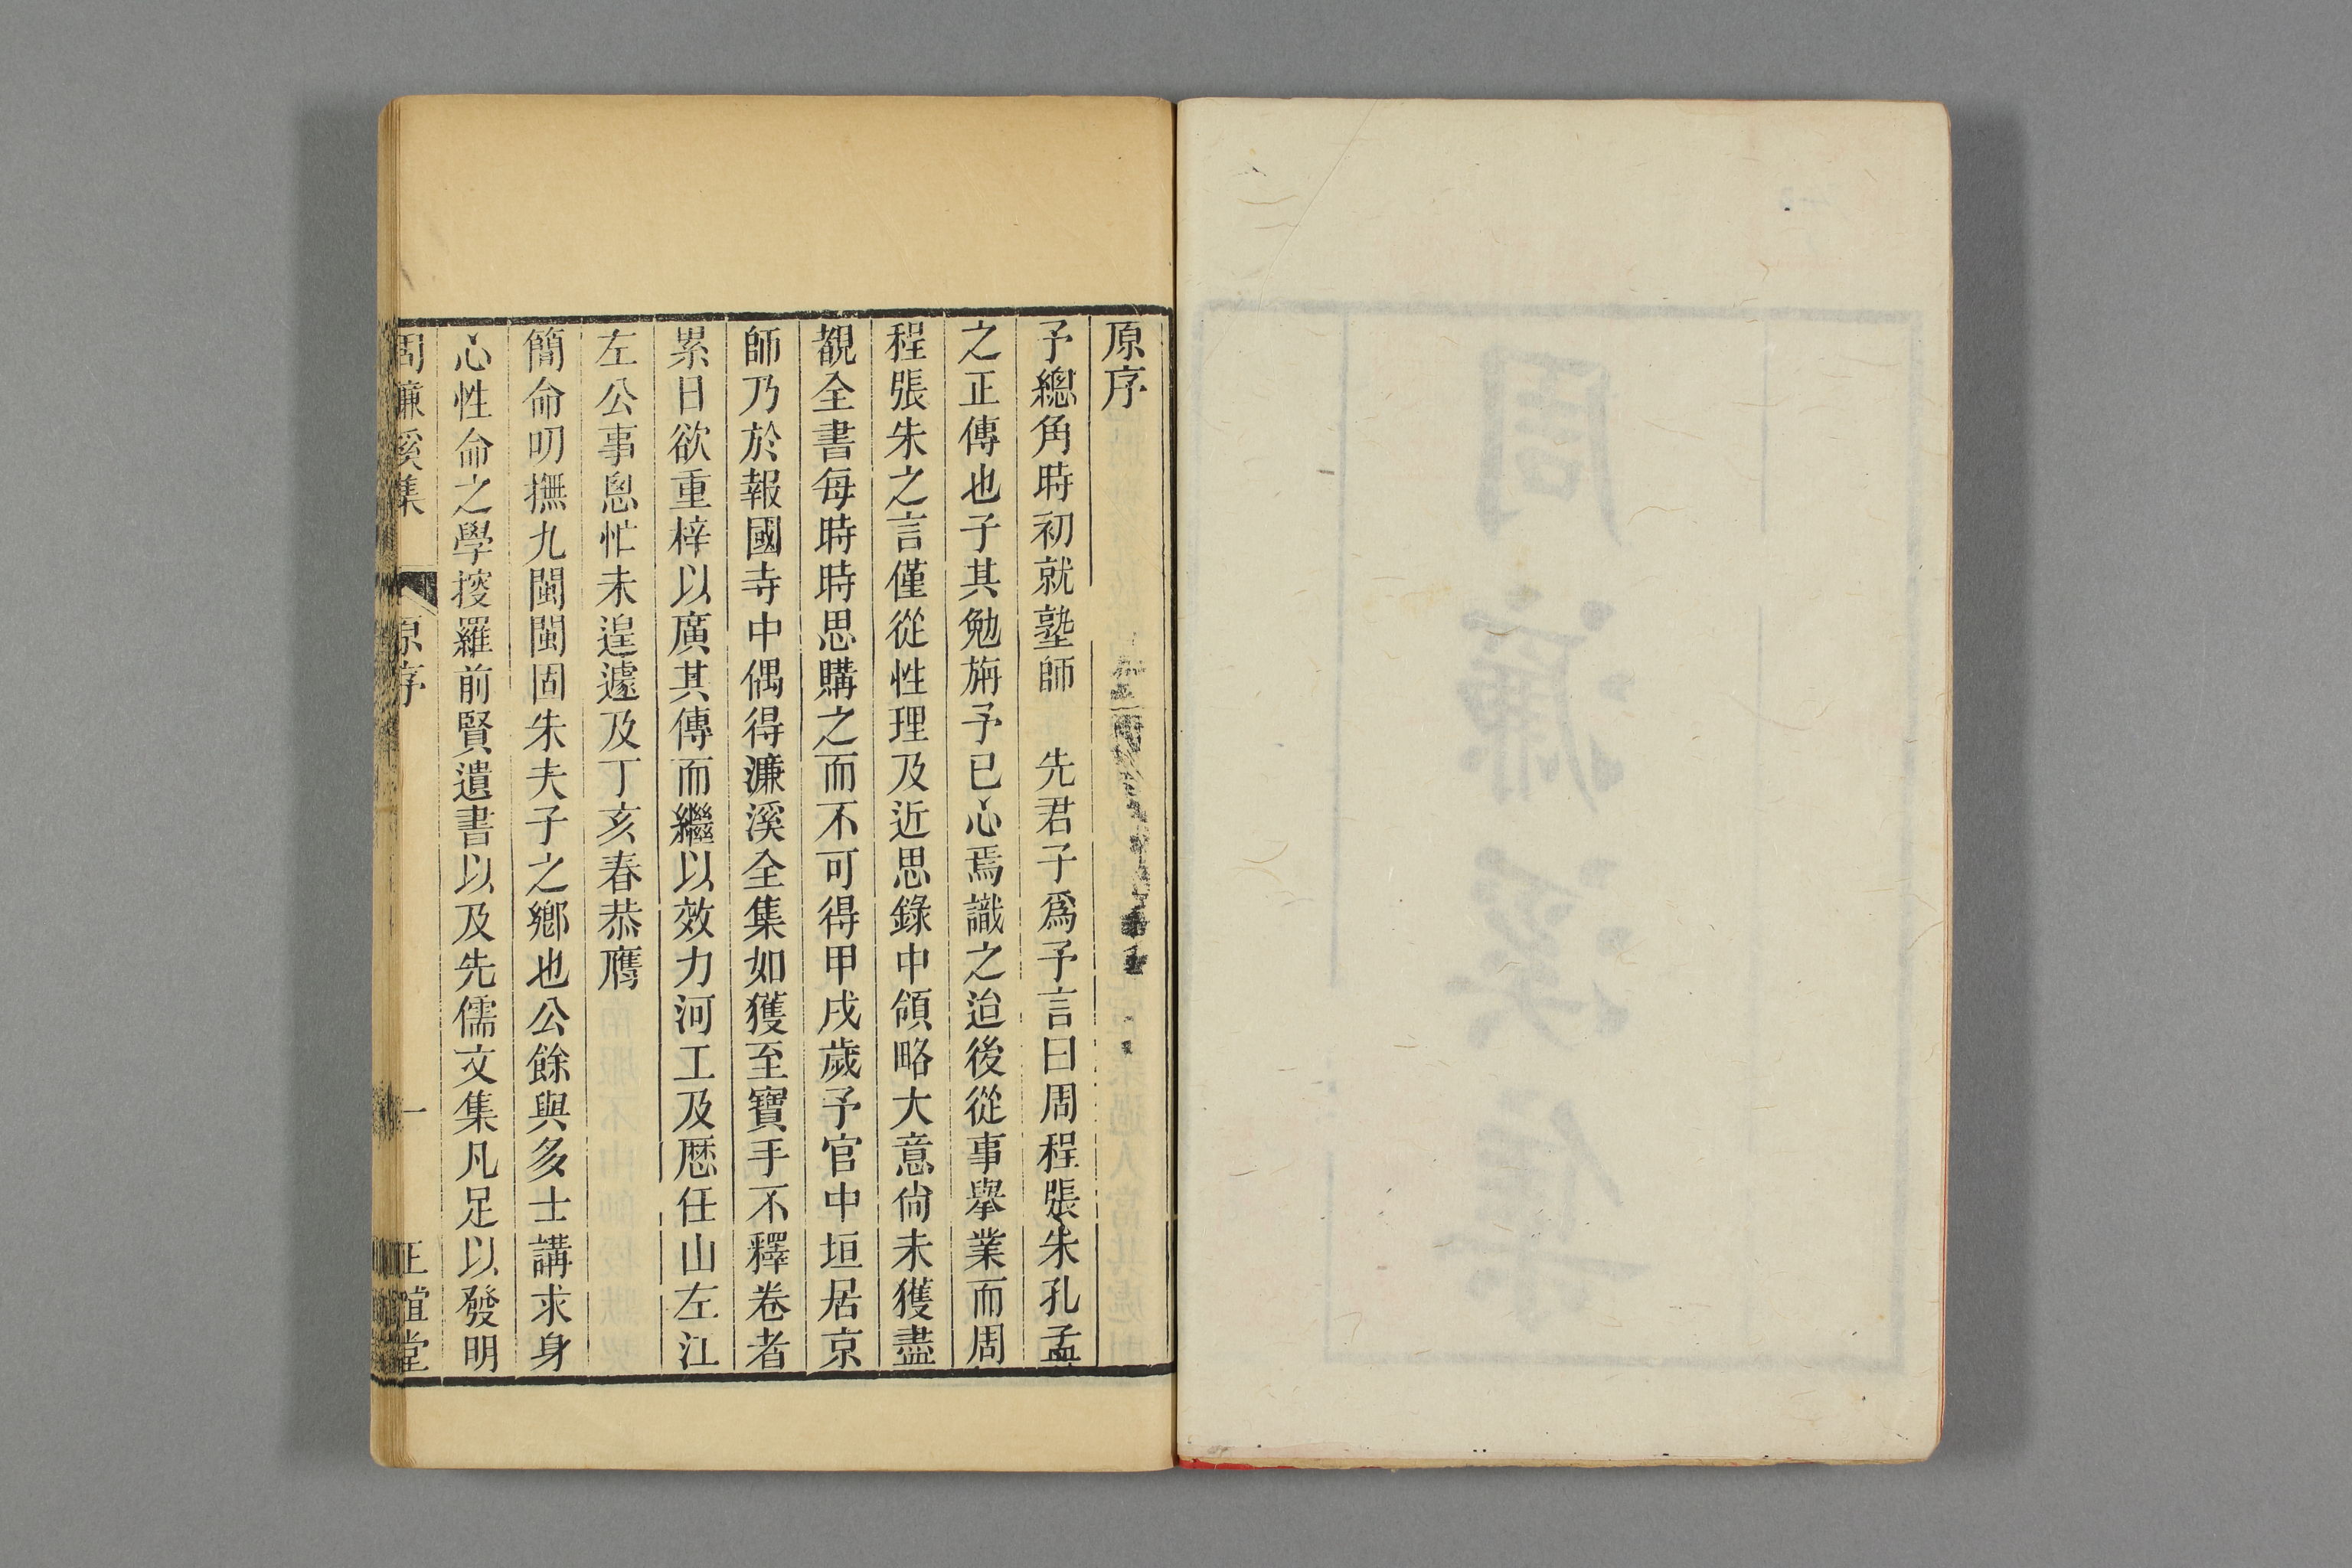 周濂溪集
原序
予總角時初就塾師　先君子爲予言曰周程張朱孔孟
之正傳也子其勉旃予已心焉識之迨後從事舉業而周
程張朱之言僅從性理及近思錄中領略大意尙未獲盡
覩全書每時時思購之而不可得甲戌歲予官中垣居京
師乃於報國寺中偶得濂溪全集如獲至寶手不釋卷者
累日欲重梓以廣其傳而繼以效力河工及歷任山左江
左公事悤忙未遑遽及丁亥春恭膺
簡命叨撫九閩閩固朱夫子之鄕也公餘與多士講求身
心性命之學搜羅前賢遺書以及先儒文集凡足以發明
周濂溪集　原序　一　正誼堂